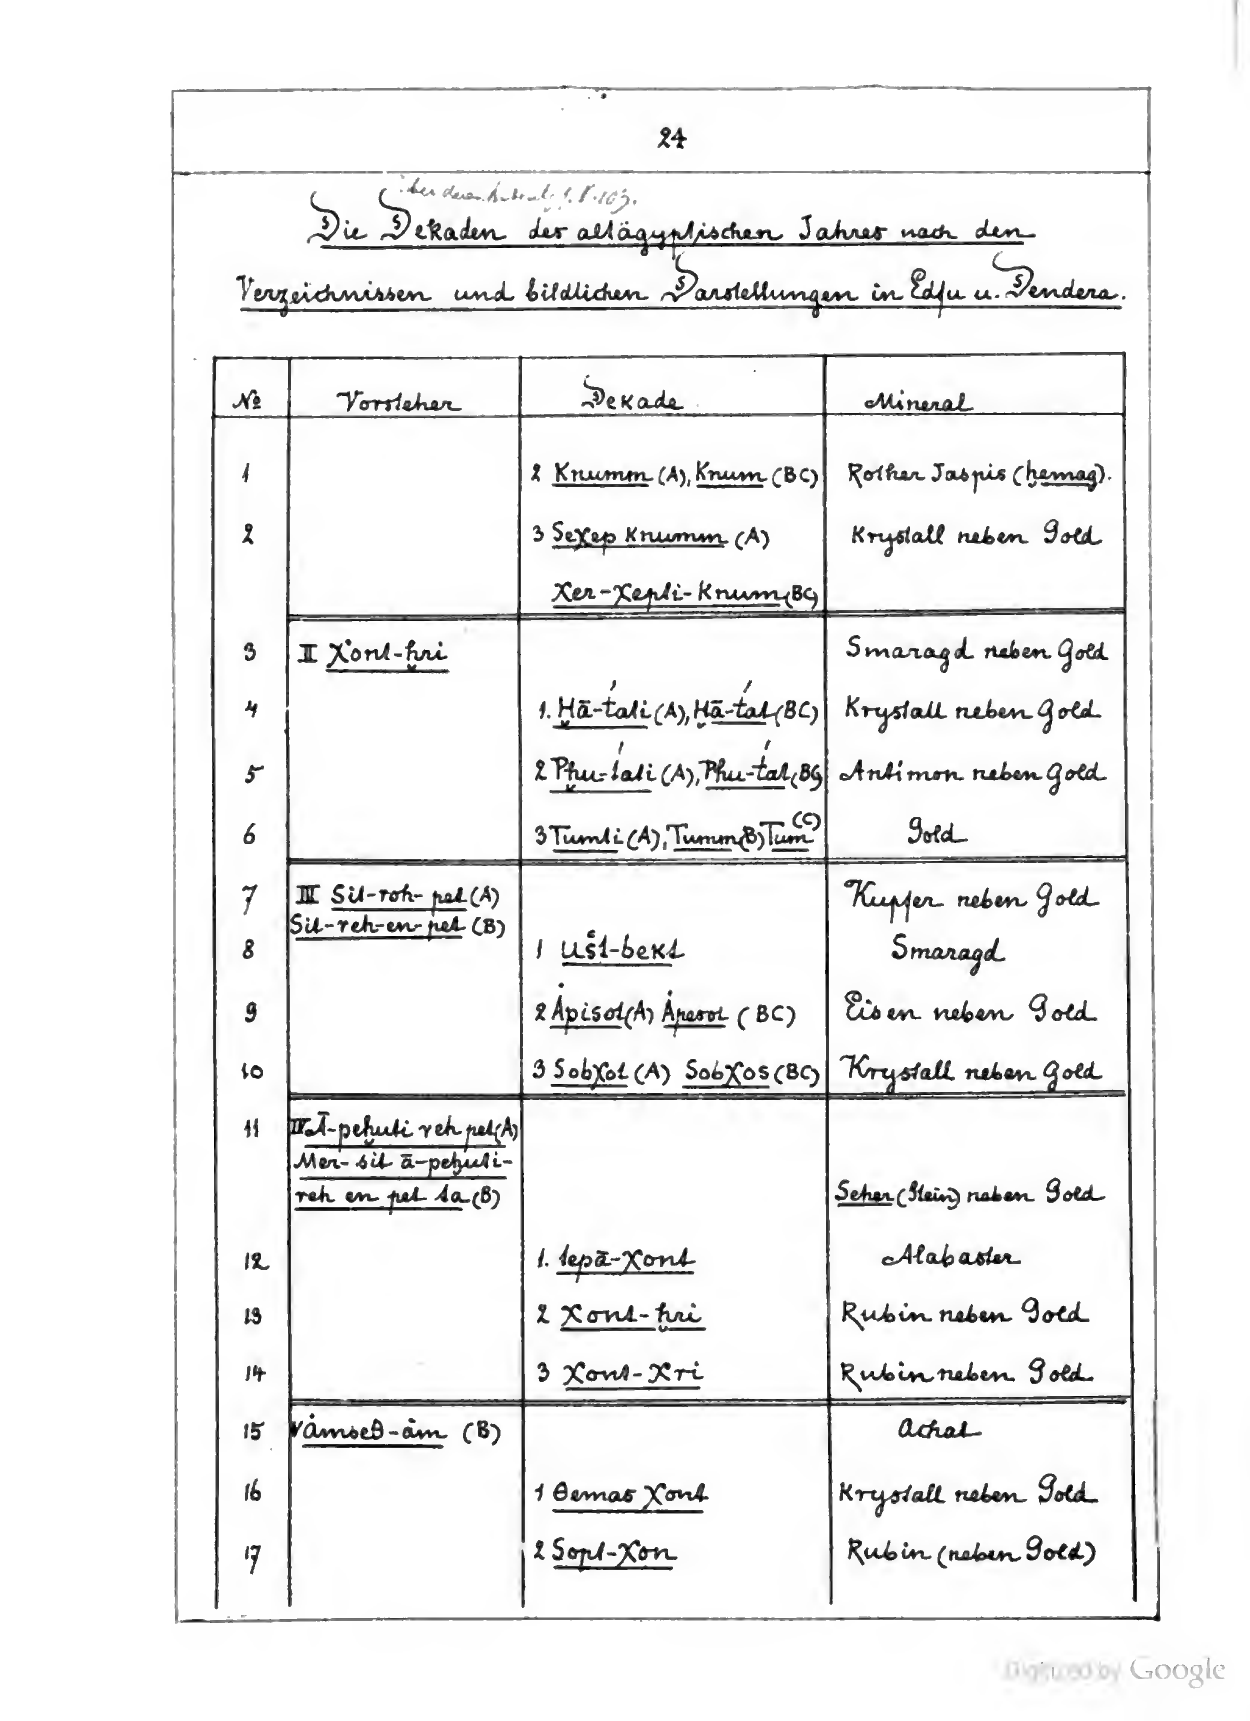 24
Die Dekaden des altägyptischen Jahres nach den
Verzeichnissen und bildlichen Darstellungen in Edfu u. Dendera.
№ Vorsteher Dekade Mineral
1 2 Knumm (A), Knum (BC) Rother Jaspis (ḥemag).
2 3 Seχep Knumm (A) Krystall neben Gold
Xer-χepti-Knum (BC)
3 II Xont-ḥri Smaragd neben Gold
4 1. Ḥā-t́ati (A), Ḥā-t́at (BC) Krystall neben Gold
5 2 Pḥu-t́ati (A), Phu-t́at (BC) Antimon neben Gold
6 3 Tumti (A), Tumm (B) Tum (C) Gold
7 III Sit-roh-pet (A) Kupfer neben Gold
Sit-reh-en-pet (B)
8 1 Ušt-bekt Smaragd
9 2 Ȧpisot (A) Ȧpesot (BC) Eisen neben Gold
10 3 Sobχot (A) Sobχos (BC) Krystall neben Gold
11 IV Ā-peḥuti reh pet (A)
Mer-sit ā-peḥuti-
reh en pet ta (B) Seher (Stein) neben Gold
12 1. tepā-χont Alabaster
13 2 Xont-ḥri Rubin neben Gold
14 3 Xont-Xri Rubin neben Gold
15 V Ȧmseθ-ȧm (B) Achat
16 1 θemas Xont Krystall neben Gold
17 2 Sopt-Xon Rubin (neben Gold)
Digitized by Google